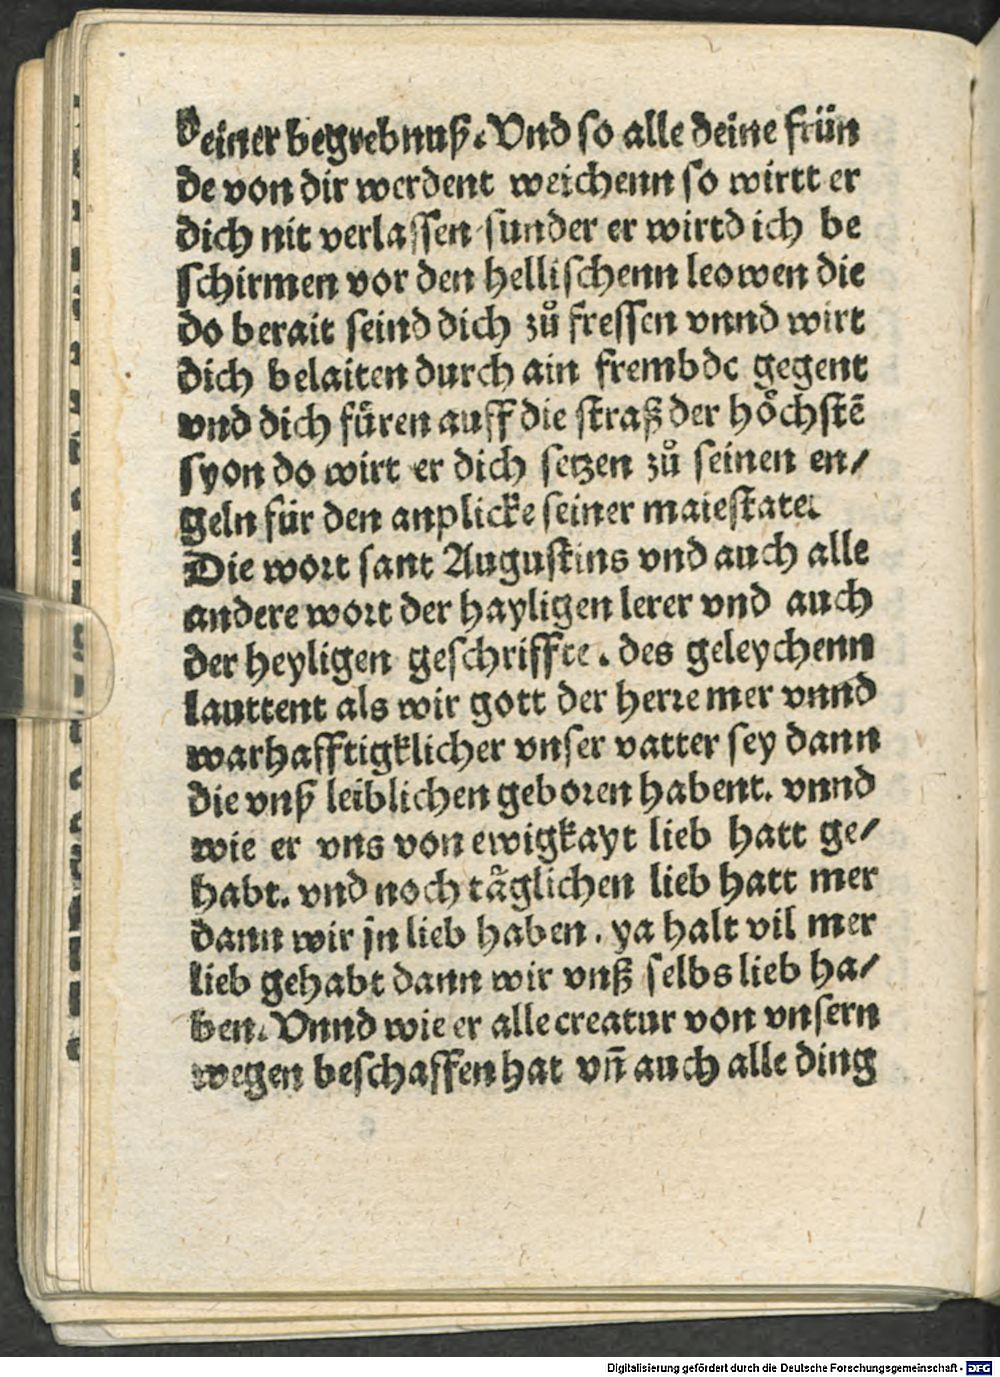 deiner begrebnuß. Vnd so alle deine frün
de von dir werdent weichenn so wirtt er
dich nit verlassen sunder er wirtd ich be
schirmen vor den hellischenn leowen die
do berait seind dich zů fressen vnnd wirt
dich belaiten durch ain frembde gegent
vnd dich fůren auff die straß der höchstē
syon do wirt er dich setzen zů seinen en/
geln für den anplicke seiner maiestate.
Die wort sant Augustins vnd auch alle
andere wort der hayligen lerer vnd auch
der heyligen geschriffte. des geleychenn
lauttent als wir gott der herre mer vnnd
warhafftigklicher vnser vatter sey dann
die vnß leiblichen geboren habent. vnnd
wie er vns von ewigkayt lieb hatt ge/
habt. vnd noch täglichen lieb hatt mer
dann wir jn lieb haben. ya halt vil mer
lieb gehabt dann wir vnß selbs lieb ha/
ben. Vnnd wie er alle creatur von vnsern
wegen beschaffen hat vn̄ auch alle ding
Digitalisierung gefördert durch die Deutsche Forschungsgemeinschaft - DFG